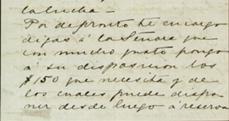 la lucha -
Por de pronto te encargo
digas á la Señora que
con mucho gusto pongo
á su disposicion los
$150 que necesita y de
los cuales puede dispo
ner desde luego á reserva